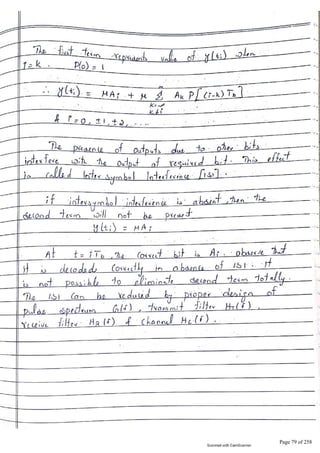 The first term represents value of y(ti) when
i=k. P(0)=1
∴ y(ti) = μAi + μ Σ Ak P[(i-k)Tb]
k=-∞
k≠i
& i=0, ±1, ±2, ...
The presence of outputs due to other bits
interfere with the output of required bit. This effect
is called Inter symbol Interference [ISI].
if intersymbol interference is absent, then the
second term will not be present
y(ti) = μAi
At t=iTb, the correct bit is Ai. observe that
it is decoded correctly in absence of ISI. It
is not possible to eliminate second term totally.
The ISI can be reduced by proper design of
pulse spectrum G(f), transmit filter HT(f),
receive filter HR(f) & channel Hc(f).
Scanned with CamScanner
Page 79 of 258